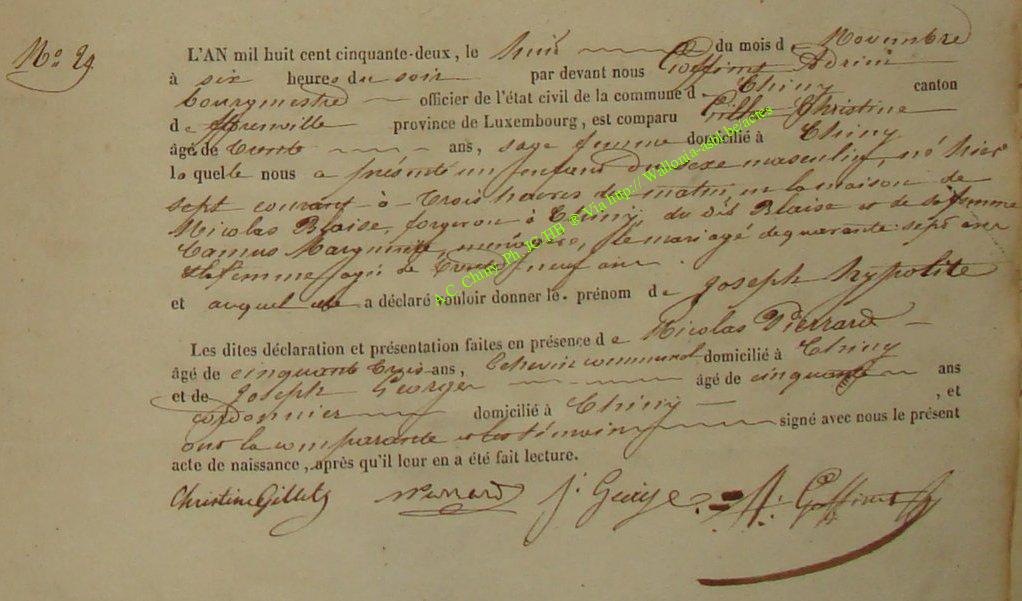 No 29
L'AN mil huit cent cinquante-deux, le huit du mois de Novembre
à six heures du soir par devant nous Goffinet Adrien
bourgmestre officier de l'état civil de la commune de Chiny canton
de province de Luxembourg, est comparu Gillet Christine
âgé de trente ans, sage femme domicilié à Chiny
laquelle nous a présenté un enfant du sexe masculin, né hier
sept courant à trois heures du matin en la maison de
Nicolas Blaise, forgeron à Chiny, du dit Blaise et de sa femme
Camus Marguerite, ménagère, le mari agé de quarante sept ans
et la femme agée de trente neuf ans.
et auquel elle a déclaré vouloir donner le prénom de Joseph Hypolite
Les dites déclaration et présentation faites en présence de Nicolas Pierrard
âgé de cinquante trois ans, Echevin communal domicilié à Chiny
et de Joseph George âgé de cinquante ans
cordonnier domicilié à Chiny , et
ont la comparante et les témoins signé avec nous le présent
acte de naissance, après qu'il leur en a été fait lecture.
Christine Gillet Pierrard J. George A. Goffinet
A.C. Chiny Ph. JC HB ® Via http:// Wallonia-asbl.be/actes